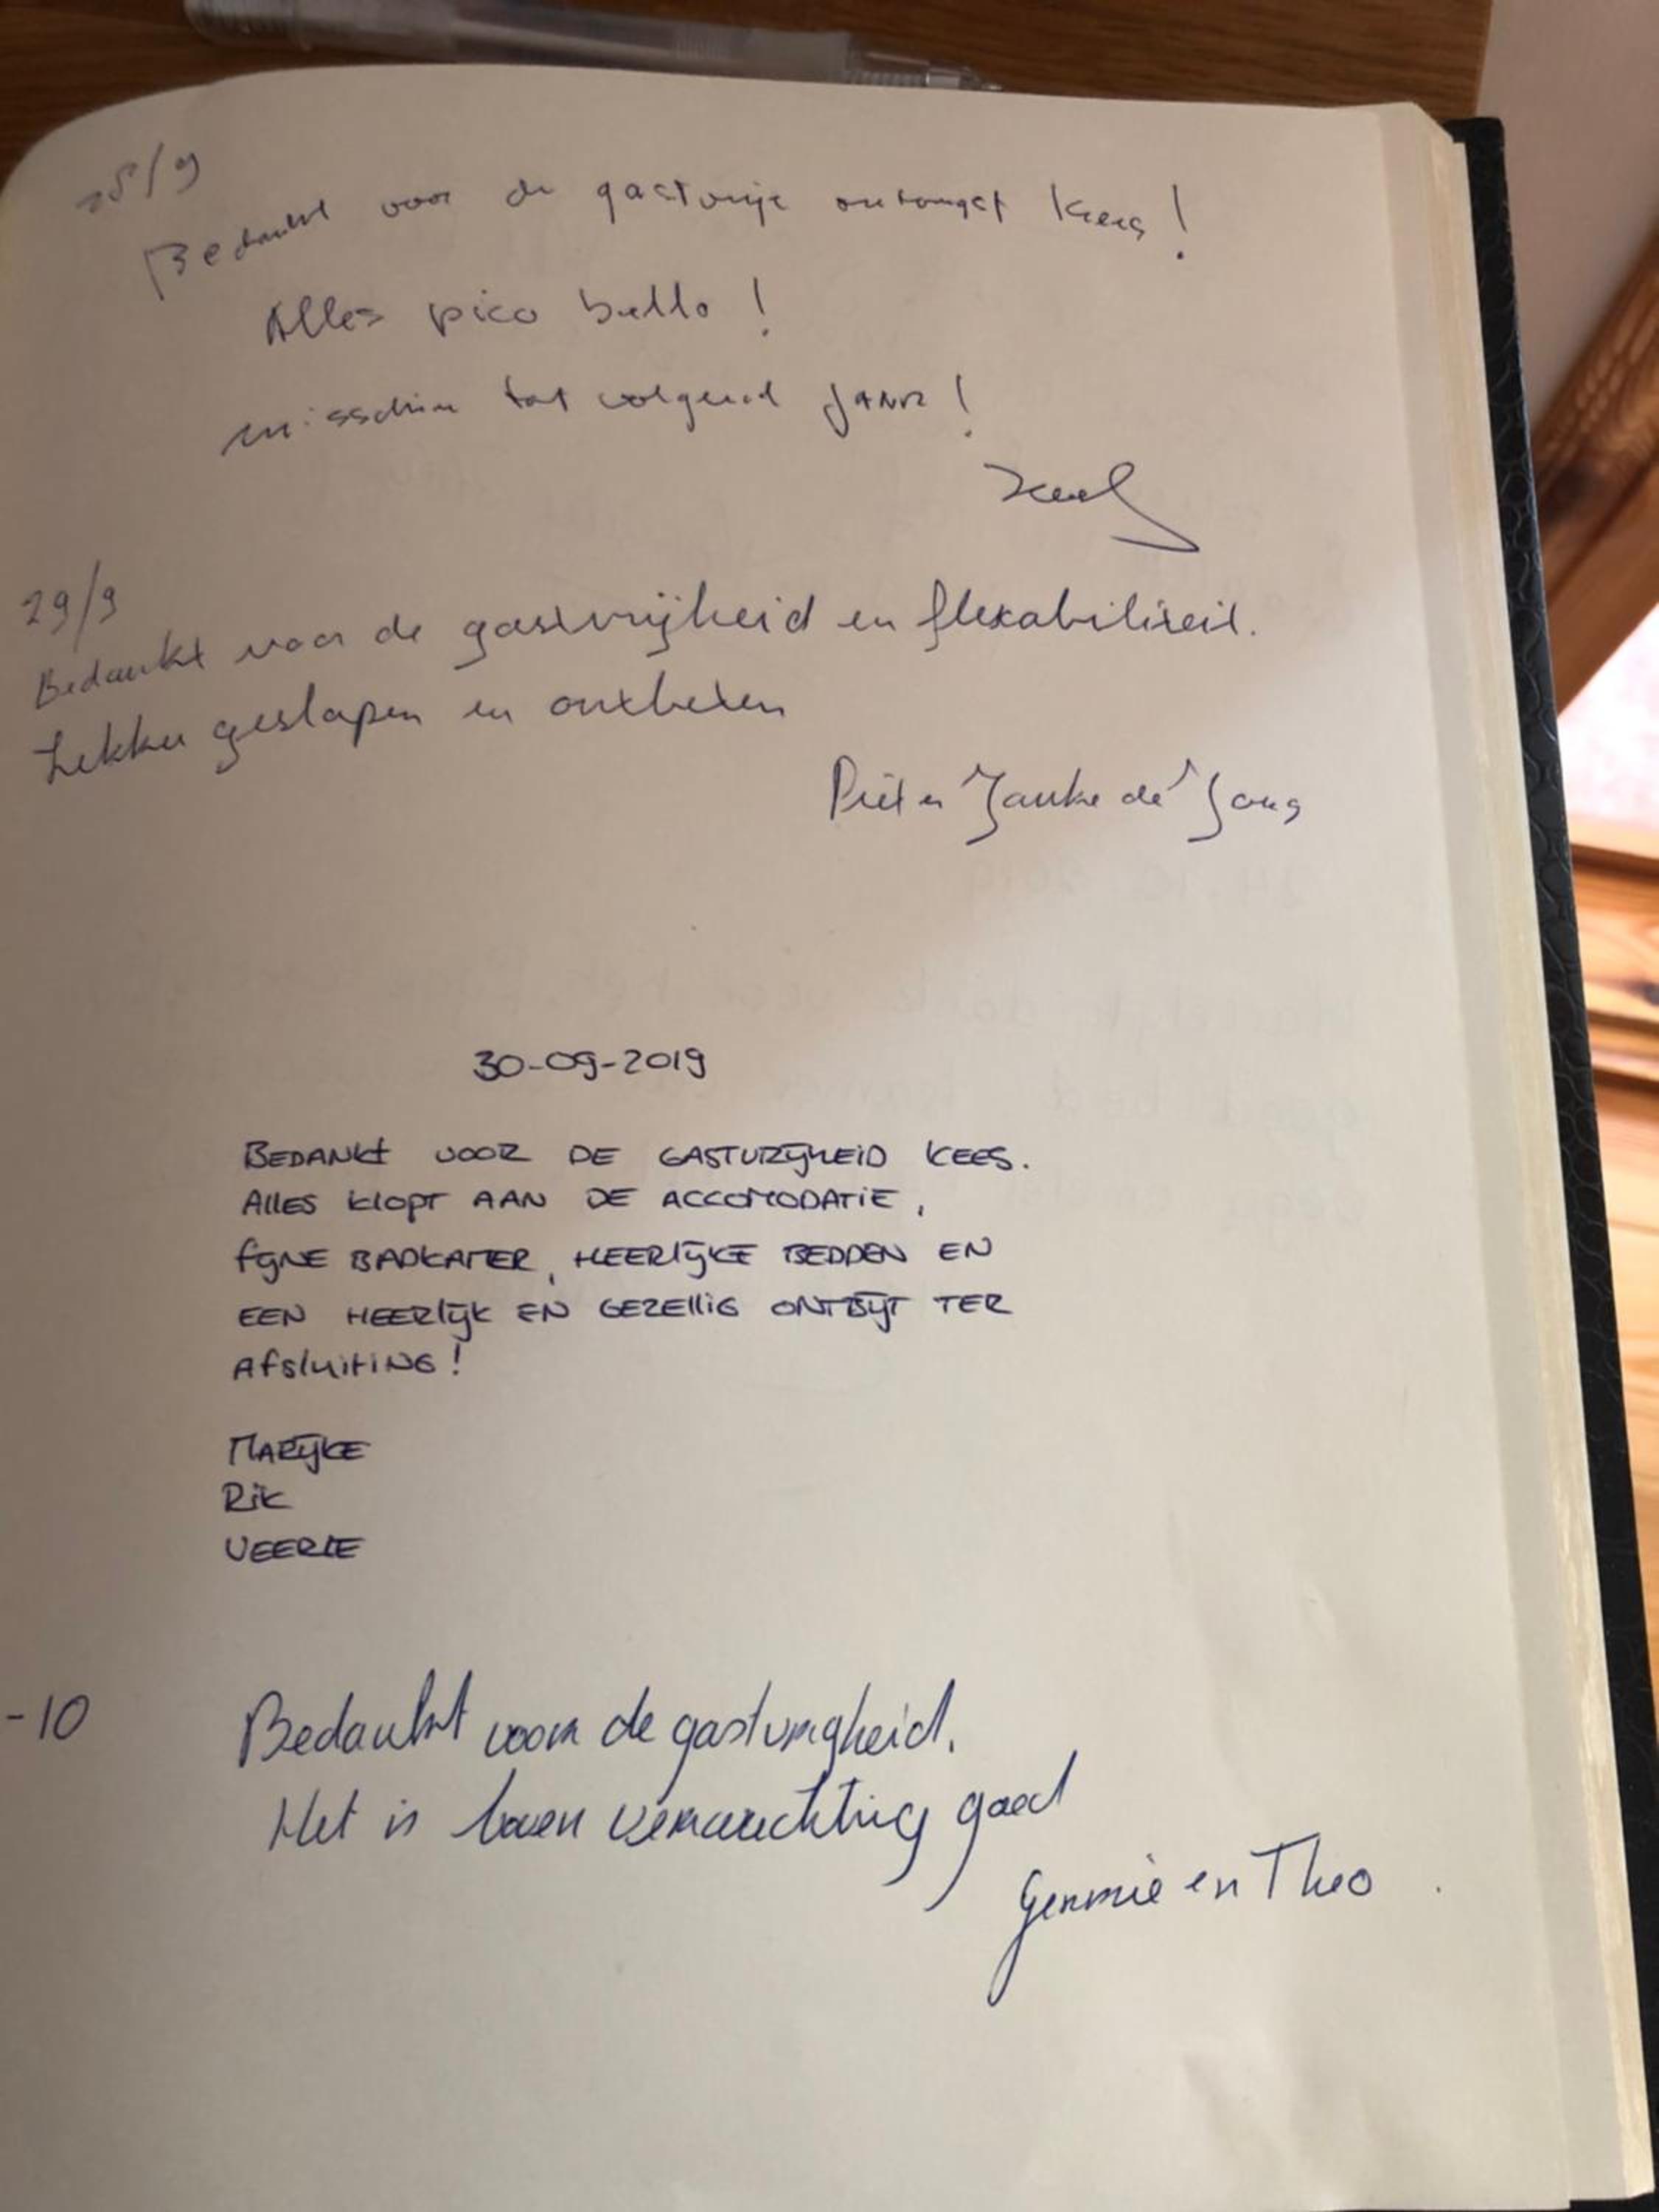 28/9
Bedankt voor de gastvrije ontvangst Kees!
Alles pico bello!
misschien tot volgend jaar!
29/9
Bedankt voor de gastvrijheid en flexabiliteit.
Lekker geslapen en ontbeten
Piet en Janke de Jong
30-09-2019
BEDANKT VOOR DE GASTVRIJHEID KEES.
ALLES KLOPT AAN DE ACCOMODATIE,
FIJNE BADKAMER, HEERLIJKE BEDDEN EN
EEN HEERLIJK EN GEZELLIG ONTBIJT TER
AFSLUITING!
MARIJKE
RIK
VEERLE
-10
Bedankt voor de gastvrijheid.
Het is boven verwachting goed
Gerrmie en Theo.